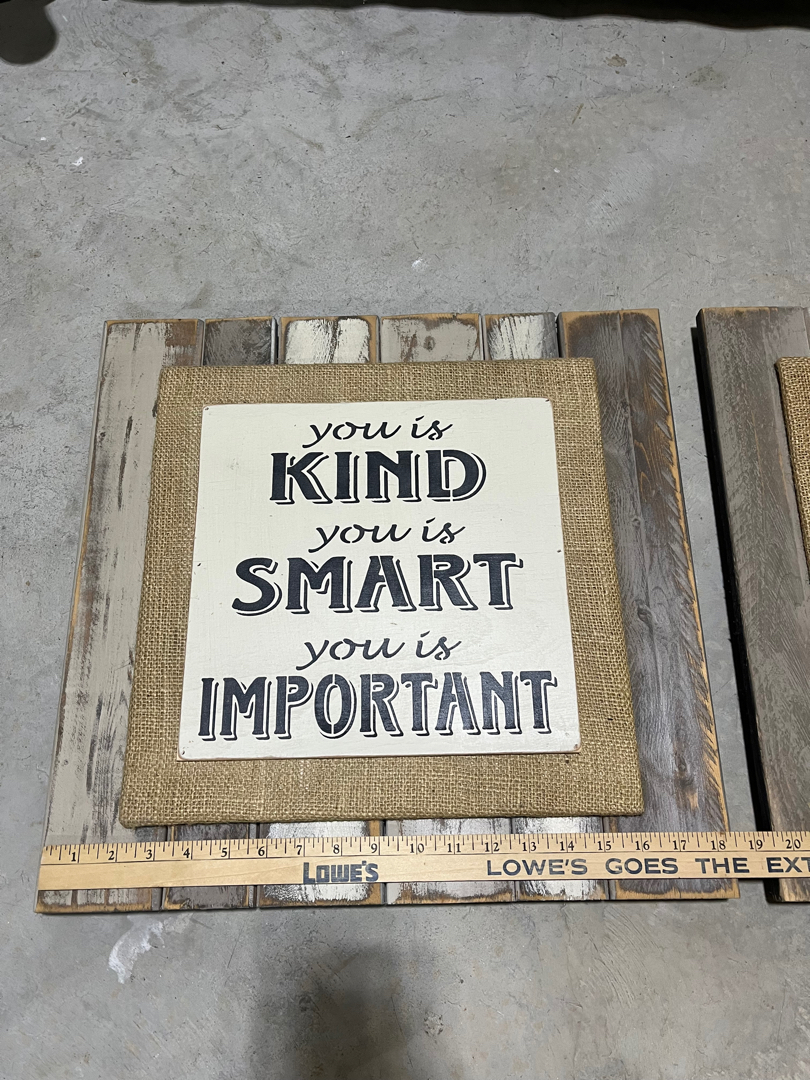 you is
KIND
you is
SMART
you is
IMPORTANT
1 2 3 4 5 6 7 8 9 10 11 12 13 14 15 16 17 18 19 20
LOWE'S LOWE'S GOES THE EXT